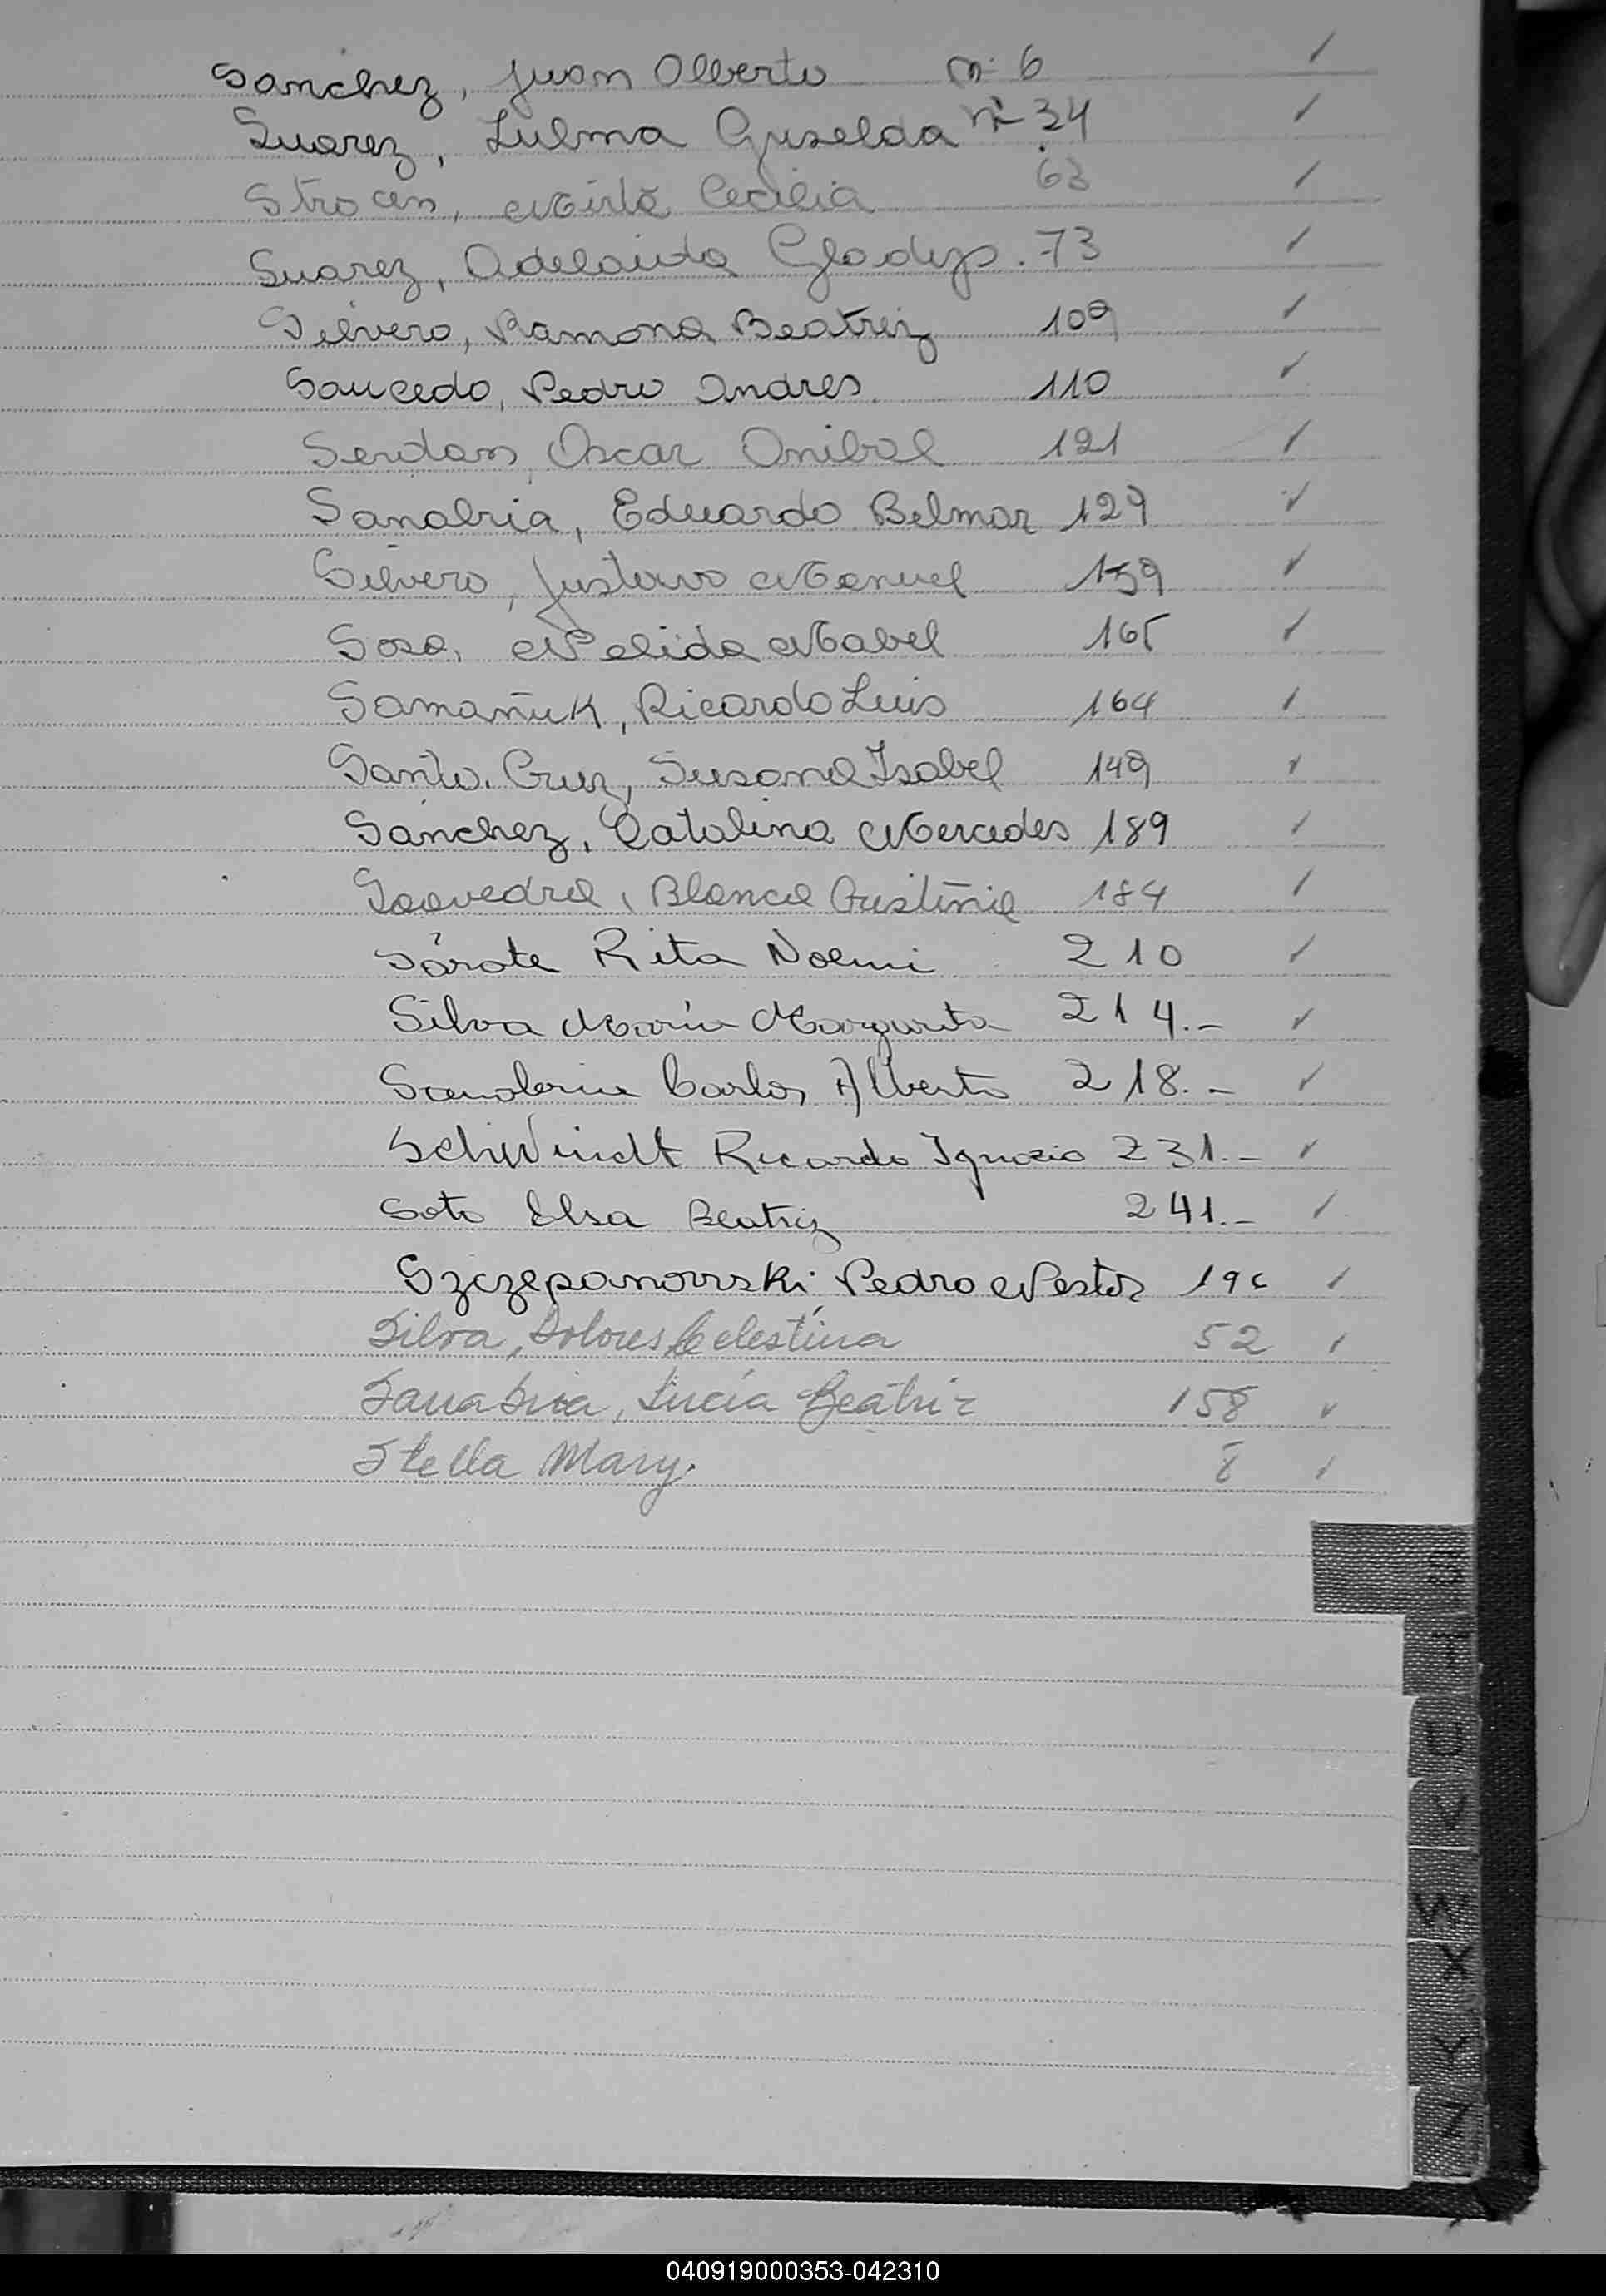 Sanchez, Juan Alberto nº 6 ✓
Suarez, Zulma Griselda nº 34 ✓
Strocen, Mirta Cecilia 63 ✓
Suarez, Adelaida Gladys. 73 ✓
Silvero, Ramona Beatriz 109 ✓
Saucedo, Pedro Andres. 110 ✓
Serdan, Oscar Anibal 121 ✓
Sanabria, Eduardo Belmar 129 ✓
Silvero, Gustavo Manuel 159 ✓
Sosa, Nelida Mabel 165 ✓
Samañuk, Ricardo Luis 164 ✓
Santa Cruz, Susana Isabel 149 ✓
Sanchez, Catalina Mercedes 189 ✓
Saavedra, Blanca Cristina 184 ✓
Sárate Rita Noemi 210 ✓
Silva María Margarita 214.- ✓
Sanabria Carlos Alberto 218.- ✓
Schwindt Ricardo Ignacio 231.- ✓
Soto Elsa Beatriz 241.- ✓
Szczepanovski, Pedro Nestor 196 ✓
Silva, Dolores Celestina 52 ✓
Sanabria, Lucía Beatriz 158 ✓
Stella Mary. 8 ✓
S
T
U
V
W
X
Y
Z
040919000353-042310